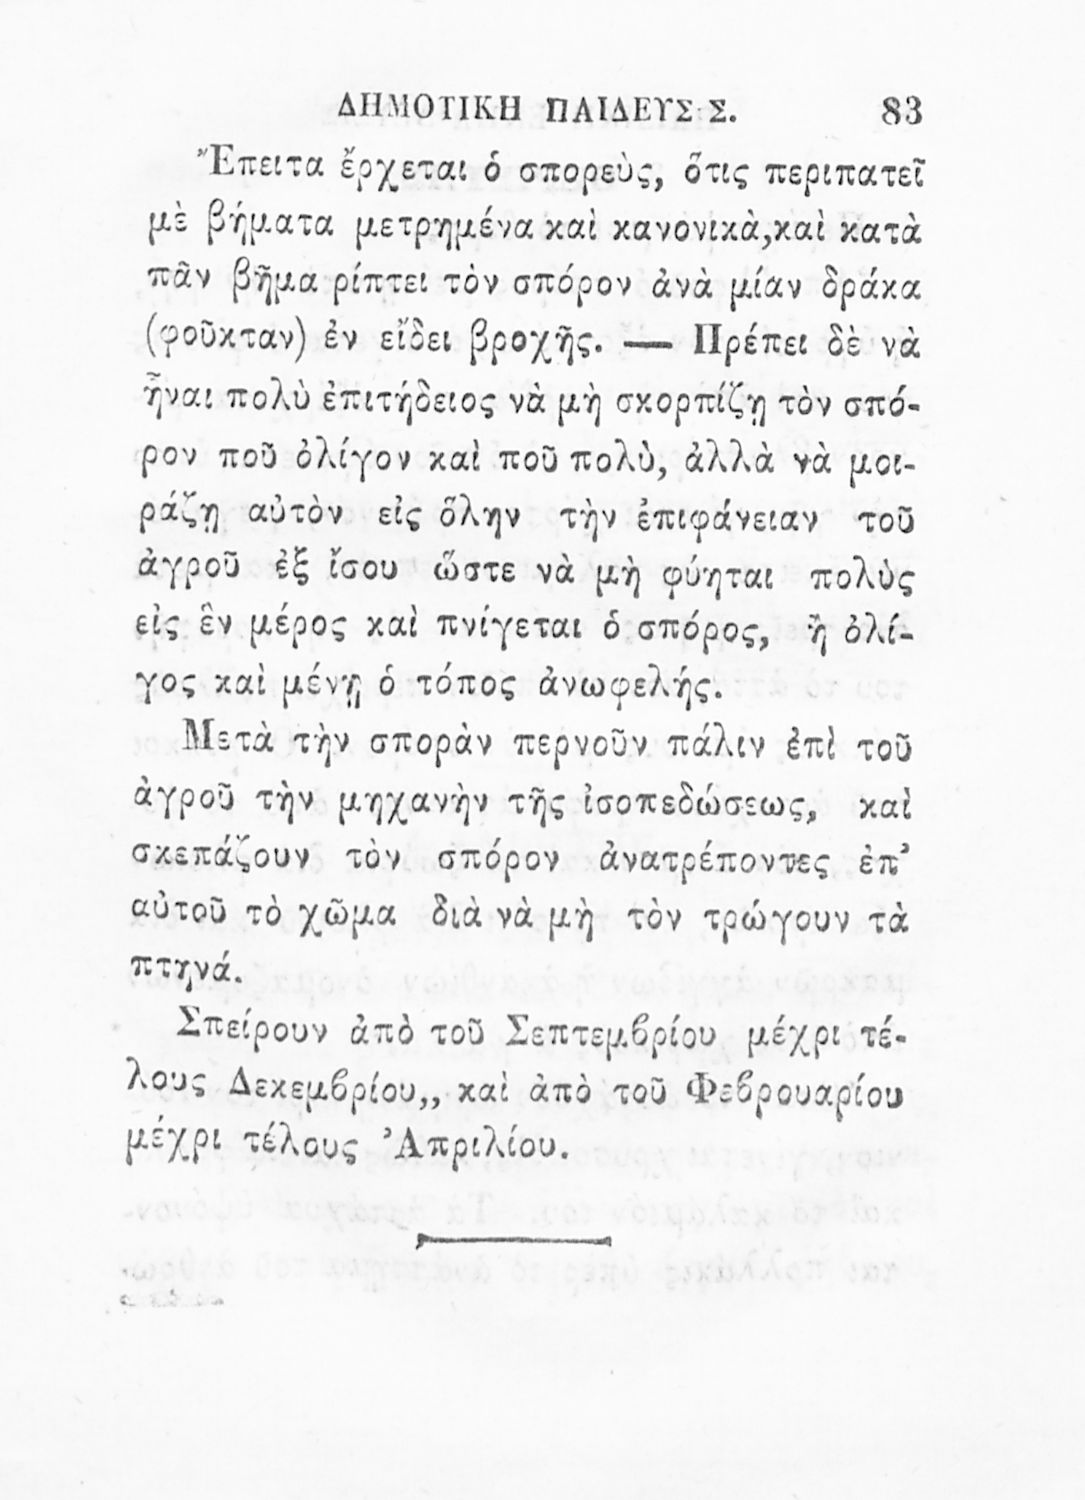 ΔΗΜΟΤΙΚΗ ΠΑΙΔΕΥΣΙΣ. 83
Ἔπειτα ἔρχεται ὁ σπορεὺς, ὅτις περιπατεῖ
μὲ βήματα μετρημένα καὶ κανονικὰ,καὶ κατὰ
πᾶν βῆμα ρίπτει τὸν σπόρον ἀνὰ μίαν δράκα
(φοῦκταν) ἐν εἴδει βροχῆς. — Πρέπει δὲ νὰ
ἦναι πολὺ ἐπιτήδειος νὰ μὴ σκορπίζῃ τὸν σπό-
ρον ποῦ ὀλίγον καὶ ποῦ πολὺ, ἀλλὰ νὰ μοι-
ράζῃ αὐτὸν εἰς ὅλην τὴν ἐπιφάνειαν τοῦ
ἀγροῦ ἐξ ἴσου ὥστε νὰ μὴ φύηται πολὺς
εἰς ἓν μέρος καὶ πνίγεται ὁ σπόρος, ἢ ὀλί-
γος καὶ μένῃ ὁ τόπος ἀνωφελής.
Μετὰ τὴν σπορὰν περνοῦν πάλιν ἐπὶ τοῦ
ἀγροῦ τὴν μηχανὴν τῆς ἰσοπεδώσεως, καὶ
σκεπάζουν τὸν σπόρον ἀνατρέποντες ἐπ’
αὐτοῦ τὸ χῶμα διὰ νὰ μὴ τὸν τρώγουν τὰ
πτηνά.
Σπείρουν ἀπὸ τοῦ Σεπτεμβρίου μέχρι τέ-
λους Δεκεμβρίου,, καὶ ἀπὸ τοῦ Φεβρουαρίου
μέχρι τέλους Ἀπριλίου.